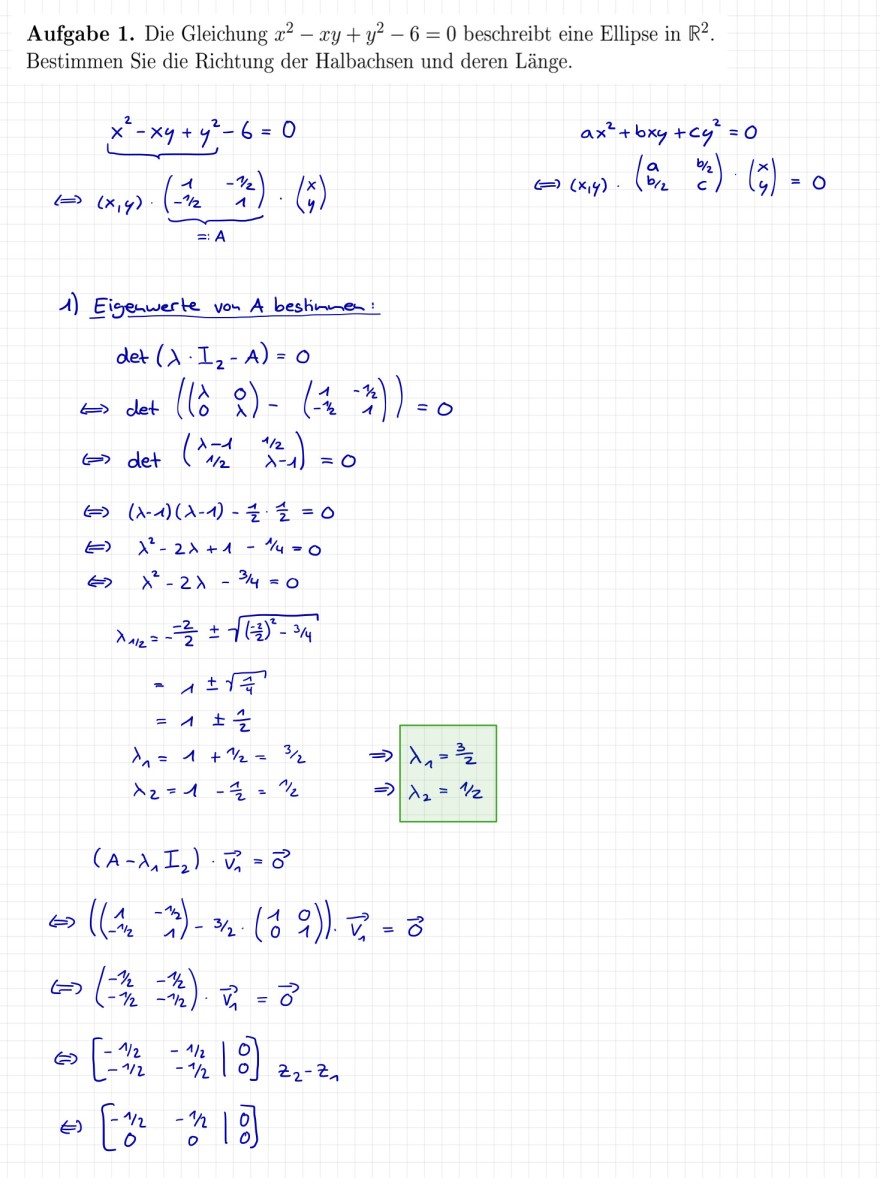 Aufgabe 1. Die Gleichung x² − xy + y² − 6 = 0 beschreibt eine Ellipse in ℝ².
Bestimmen Sie die Richtung der Halbachsen und deren Länge.
x² - xy + y² - 6 = 0
⇔ (x,y) · (1 -1/2; -1/2 1) · (x; y)
=: A
ax² + bxy + cy² = 0
⇔ (x,y) · (a b/2; b/2 c) · (x; y) = 0
1) Eigenwerte von A bestimmen:
det (λ · I₂ - A) = 0
⇔ det ((λ 0; 0 λ) - (1 -1/2; -1/2 1)) = 0
⇔ det (λ-1 1/2; 1/2 λ-1) = 0
⇔ (λ-1)(λ-1) - 1/2 · 1/2 = 0
⇔ λ² - 2λ + 1 - 1/4 = 0
⇔ λ² - 2λ - 3/4 = 0
λ₁/₂ = - -2/2 ± √((-2/2)² - 3/4)
= 1 ± √(1/4)
= 1 ± 1/2
λ₁ = 1 + 1/2 = 3/2 ⇒ λ₁ = 3/2
λ₂ = 1 - 1/2 = 1/2 ⇒ λ₂ = 1/2
(A - λ₁ I₂) · v⃗₁ = 0⃗
⇔ ((1 -1/2; -1/2 1) - 3/2 · (1 0; 0 1)) · v⃗₁ = 0⃗
⇔ (-1/2 -1/2; -1/2 -1/2) · v⃗₁ = 0⃗
⇔ [-1/2 -1/2 | 0; -1/2 -1/2 | 0] Z₂ - Z₁
⇔ [-1/2 -1/2 | 0; 0 0 | 0]